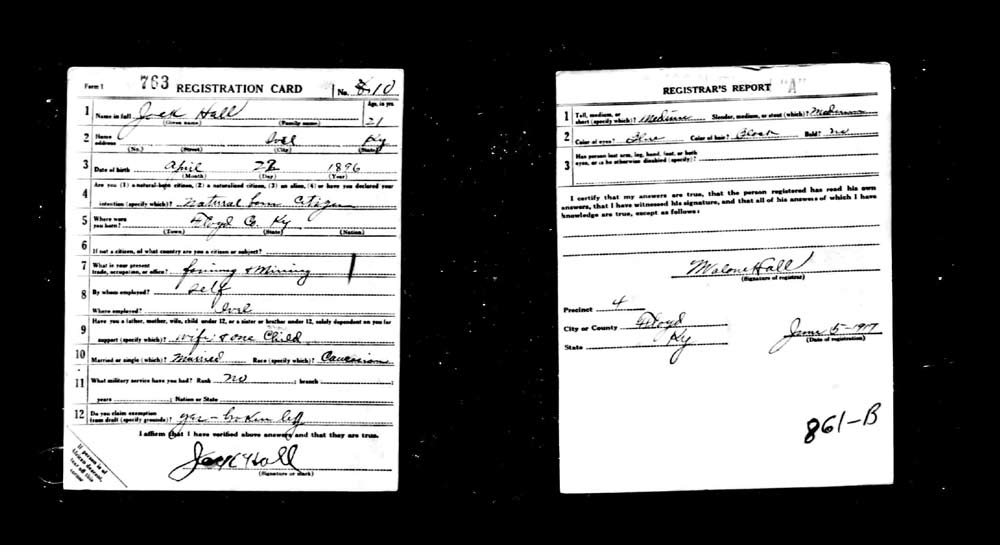 Form 1 763 REGISTRATION CARD No. 10
1 Name in full Jack Hall Age, in yrs. 21
(Given name) (Family name)
2 Home address Ky
(No.) (Street) (City) (State)
3 Date of birth April 22 1896
(Month) (Day) (Year)
4 Are you (1) a natural-born citizen, (2) a naturalized citizen, (3) an alien, (4) or have you declared your
intention (specify which)? Natural born Citizen
5 Where were you born? Floyd Co. Ky
(Town) (State) (Nation)
6 If not a citizen, of what country are you a citizen or subject?
7 What is your present trade, occupation, or office? farming & Mining
8 By whom employed? self
Where employed?
9 Have you a father, mother, wife, child under 12, or a sister or brother under 12, solely dependent on you for
support (specify which)? wife & one Child
10 Married or single (which)? Married Race (specify which)? Caucasian
11 What military service have you had? Rank no ; branch ;
years ; Nation or State
12 Do you claim exemption from draft (specify grounds)? yes – broken leg
I affirm that I have verified above answers and that they are true.
Jack Hall
(Signature or mark)
If person is of African descent, tear off this corner
REGISTRAR'S REPORT "A"
1 Tall, medium, or short (specify which)? Medium Slender, medium, or stout (which)? Medium
2 Color of eyes? Color of hair? Black Bald? no
3 Has person lost arm, leg, hand, foot, or both eyes, or is he otherwise disabled (specify)?
I certify that my answers are true, that the person registered has read his own
answers, that I have witnessed his signature, and that all of his answers of which I have
knowledge are true, except as follows:
Malone Hall
(Signature of registrar)
Precinct 4
City or County Floyd
State Ky
June 5-1917
(Date of registration)
861-B